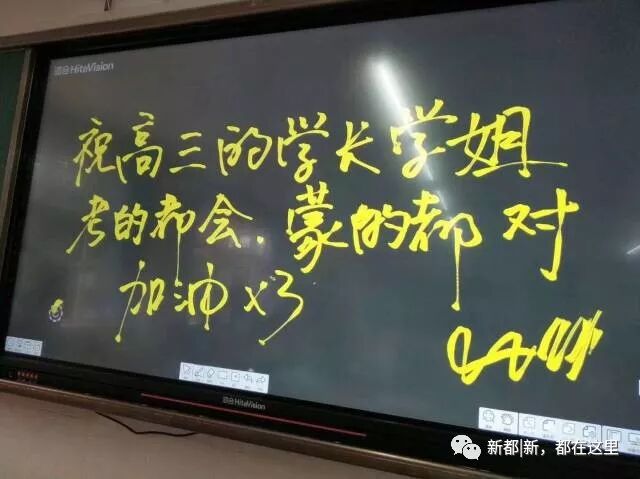 鸿合HiteVision
祝高三的学长学姐
考的都会.蒙的都对
加油x3
鸿合HiteVision
新都|新，都在这里